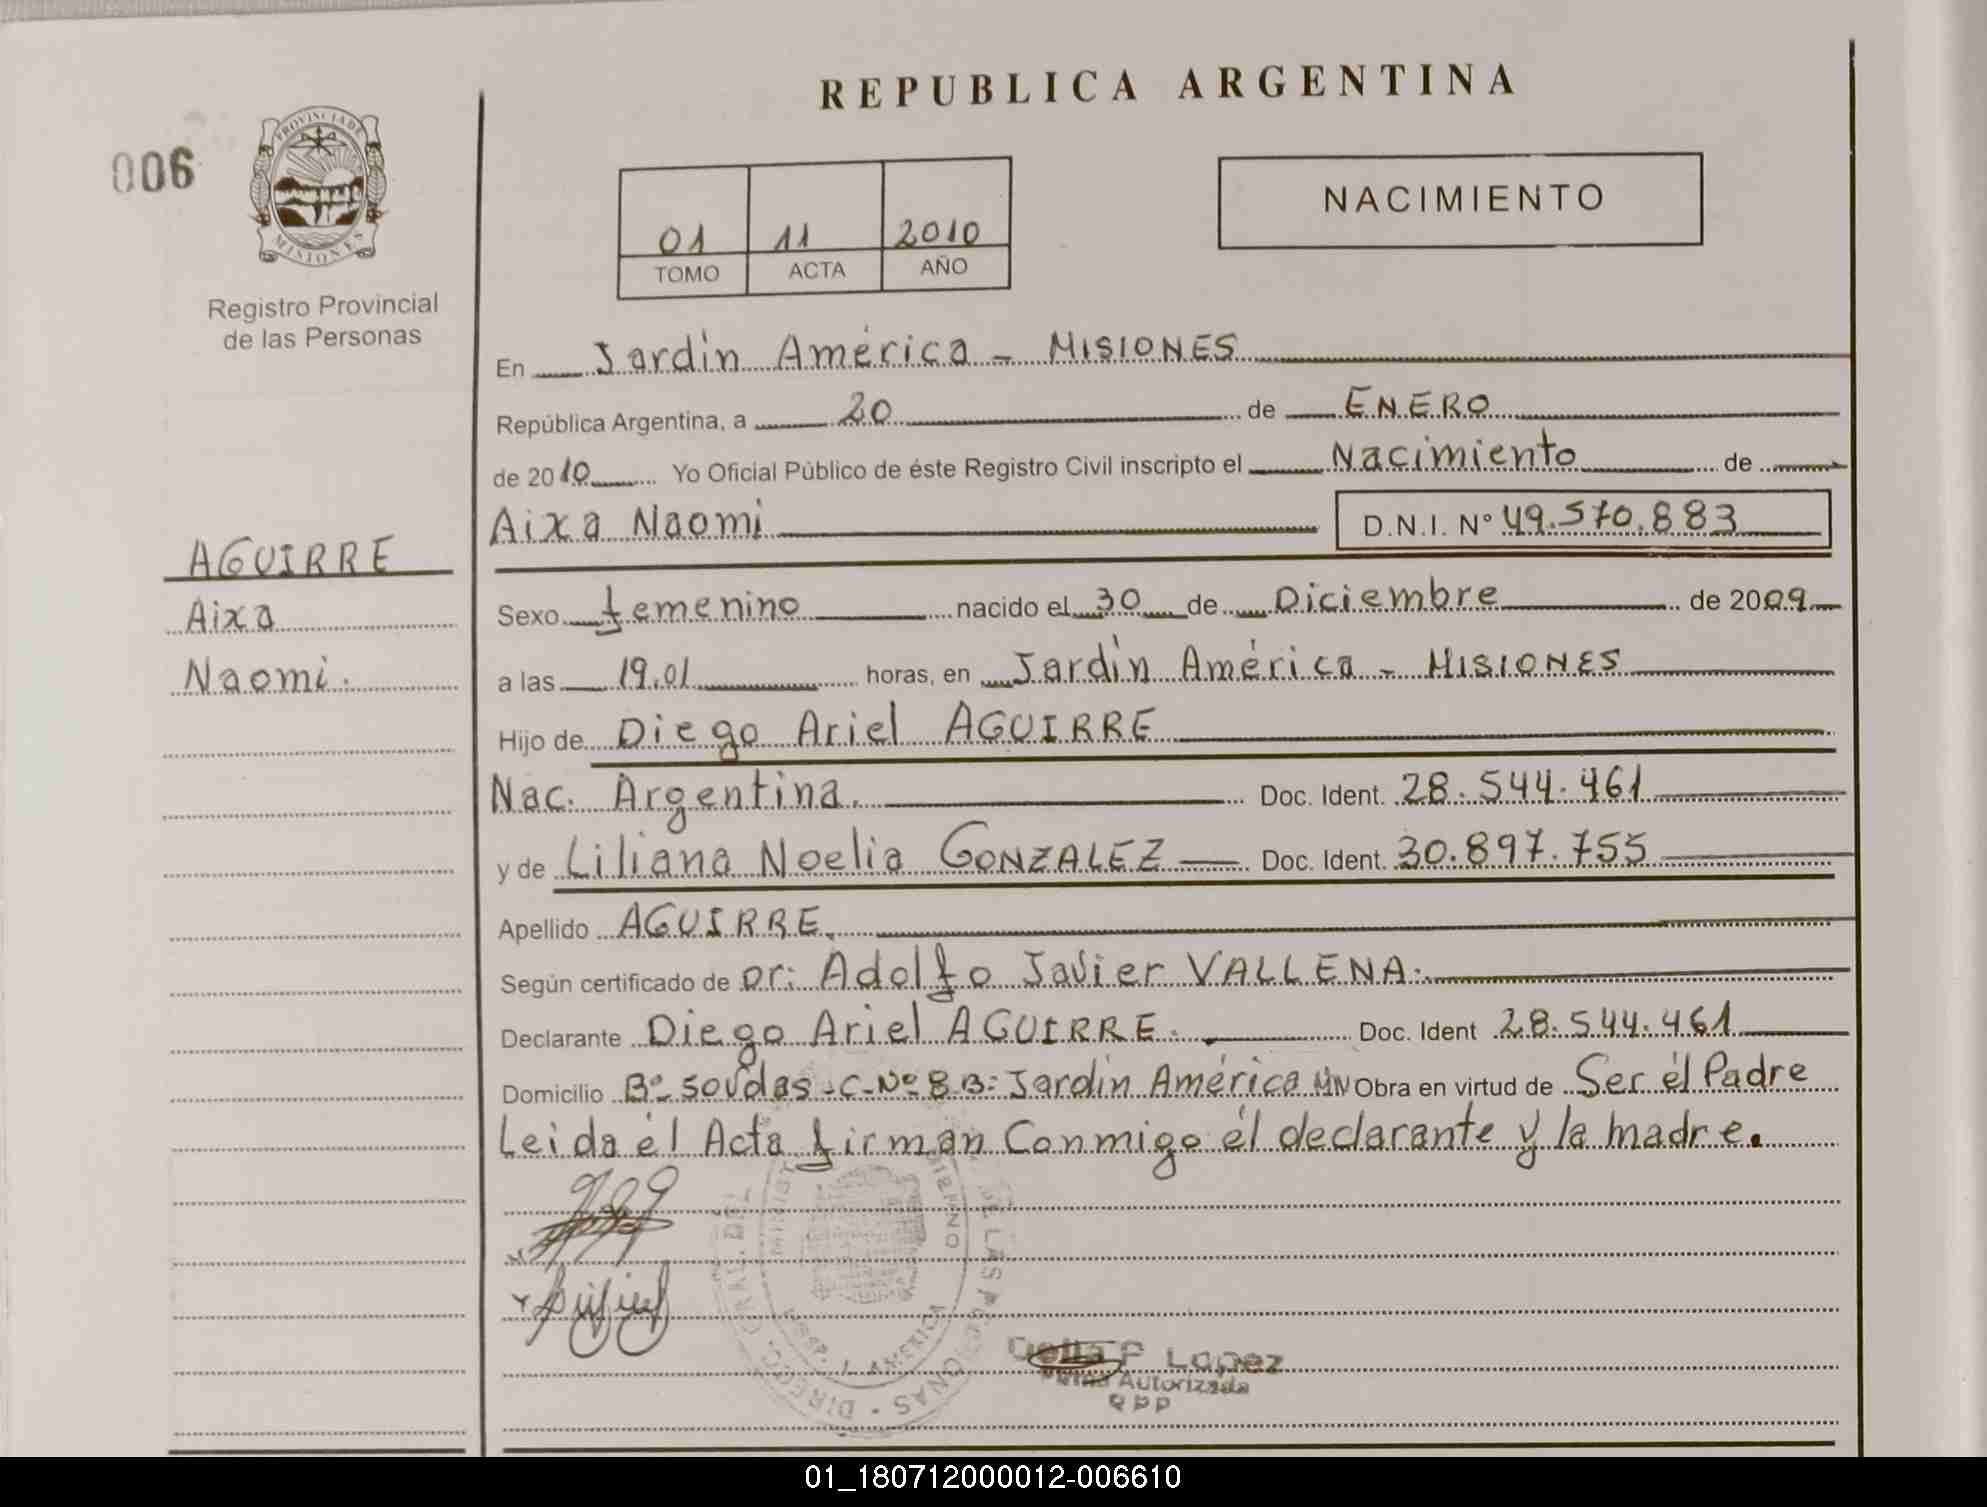 REPUBLICA ARGENTINA
006
PROVINCIA DE
MISIONES
Registro Provincial
de las Personas
NACIMIENTO
01 11 2010
TOMO ACTA AÑO
En Jardín América - MISIONES
República Argentina, a 20 de ENERO
de 2010 Yo Oficial Público de éste Registro Civil inscripto el Nacimiento de
Aixa Naomi D.N.I. N° 49.570.883
AGUIRRE
Aixa
Naomi.
Sexo femenino nacido el 30 de Diciembre de 2009
a las 19.01 horas, en Jardín América - MISIONES
Hijo de Diego Ariel AGUIRRE
Nac. Argentina. Doc. Ident. 28.544.461
y de Liliana Noelia GONZALEZ Doc. Ident. 30.897.755
Apellido AGUIRRE.
Según certificado de Dr: Adolfo Javier VALLENA.
Declarante Diego Ariel AGUIRRE. Doc. Ident 28.544.461
Domicilio B° C-N° 8 B: Jardín América Obra en virtud de Ser él Padre
Leida él Acta firman Conmigo él declarante y la madre.
DE LAS PERSONAS
AMERICA
P Lopez
Autorizada
RPP
01_180712000012-006610